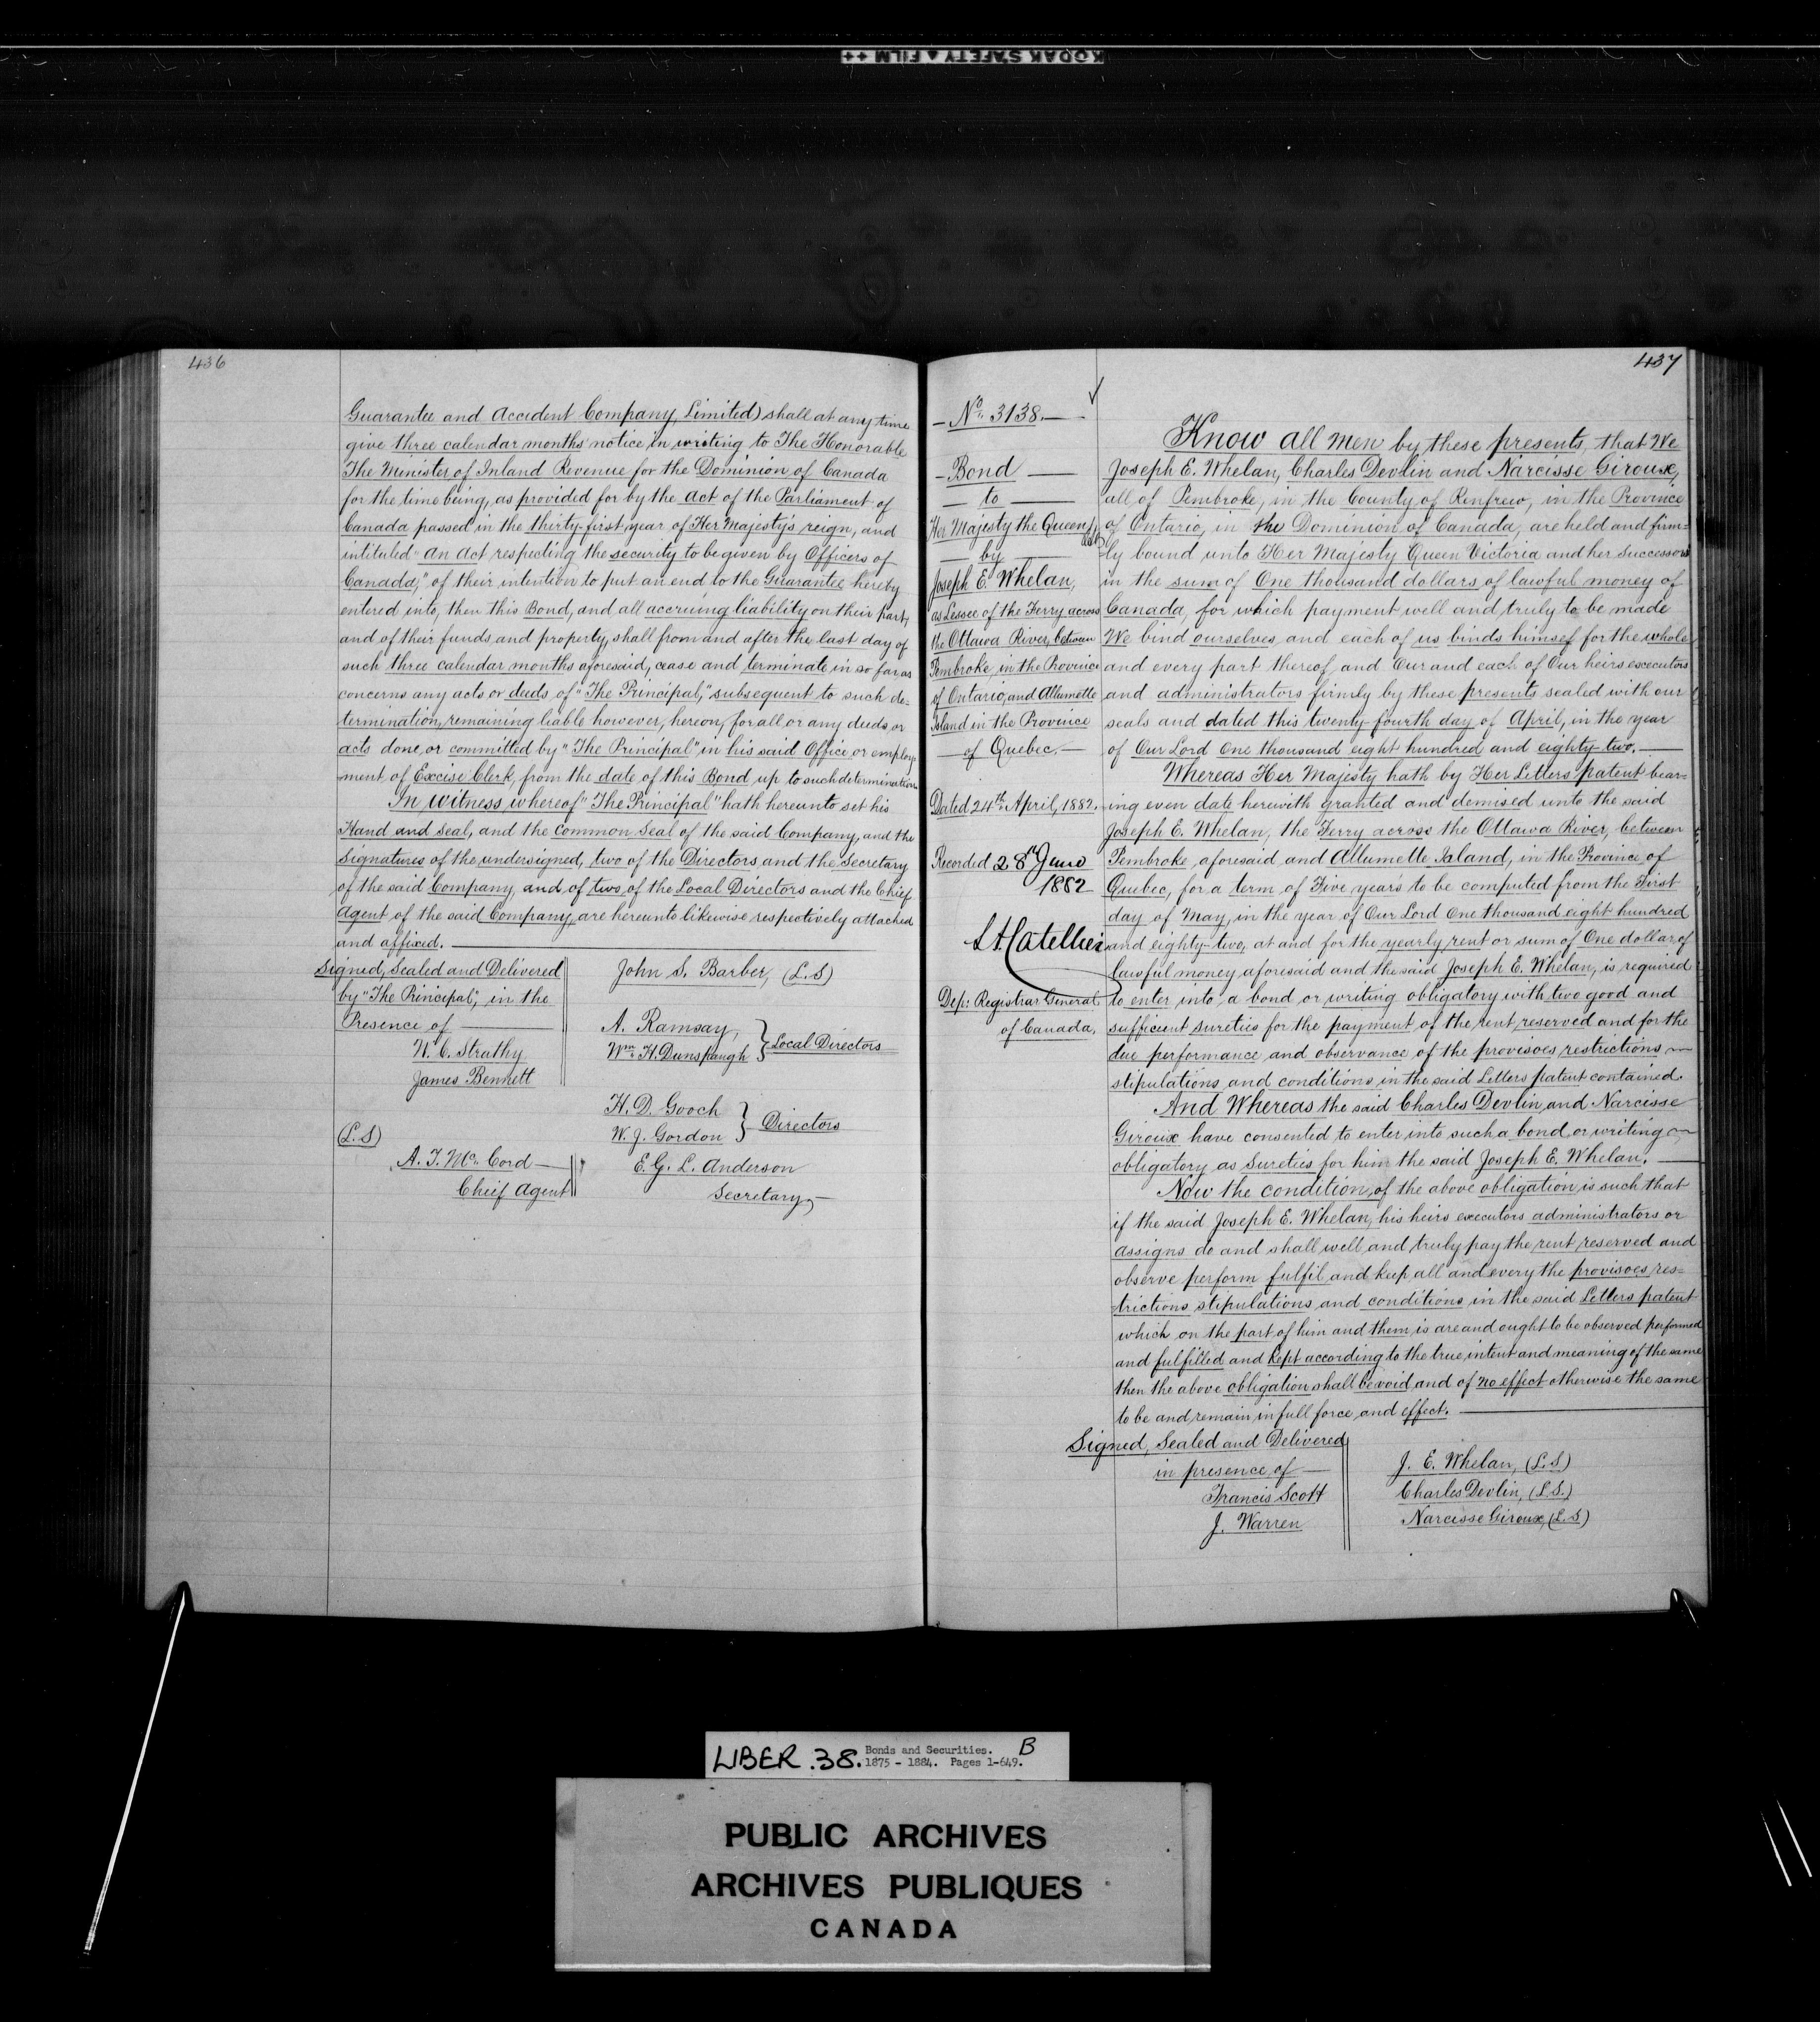 KODAK SAFETY FILM
436
Guarantee and Accident Company, Limited) shall at any time
give three calendar months' notice in writing to The Honorable
The Minister of Inland Revenue for the Dominion of Canada
for the time being, as provided for by the Act of the Parliament of
Canada passed in the thirty-first year of Her Majesty's reign, and
intituled "An Act respecting the security to be given by Officers of
Canada," of their intention to put an end to the Guarantee hereby
entered into, then this Bond, and all accruing liability on their part,
and of their funds and property, shall from and after the last day of
such three calendar months aforesaid, cease and terminate in so far as
concerns any acts or deeds of "The Principal," subsequent to such de=
termination, remaining liable however, hereon, for all or any deeds or
acts done or committed by "The Principal" in his said Office or employ=
ment of Excise Clerk, from the date of this Bond up to such determination.
In witness whereof "The Principal" hath hereunto set his
Hand and Seal, and the Common Seal of the said Company, and the
Signatures of the undersigned, two of the Directors and the Secretary
of the said Company, and of two of the Local Directors and the Chief
Agent of the said Company, are hereunto likewise respectively attached
and affixed.
Signed, Sealed and Delivered
by "The Principal", in the
Presence of
N. C. Strathy
James Bennett
John S. Barber, (L.S)
A. Ramsay,
Wm. H. Dunspaugh } Local Directors
H. D. Gooch
W. J. Gordon } Directors
(L.S)
A. T. Mc. Cord
Chief Agent
E. G. L. Anderson
Secretary,
437
No. 3138.
Bond
to
Her Majesty the Queen,
by
Joseph E. Whelan,
as Lessee of the Ferry across
the Ottawa River, between
Pembroke, in the Province
of Ontario, and Allumette
Island in the Province
of Quebec.
Dated 24th April, 1882.
Recorded 28th June
1882
L A Catellier
Dep: Registrar General
of Canada.
Know all men by these presents, that We
Joseph E. Whelan, Charles Devlin and Narcisse Giroux,
all of Pembroke, in the County of Renfrew, in the Province
of Ontario, in the Dominion of Canada, are held and firm=
ly bound unto Her Majesty Queen Victoria and her successors
in the sum of One thousand dollars of lawful money of
Canada, for which payment well and truly to be made
We bind ourselves and each of us binds himsef for the whole
and every part thereof, and Our and each of Our heirs executors
and administrators firmly by these presents sealed with our
seals and dated this twenty-fourth day of April, in the year
of Our Lord One thousand eight hundred and eighty-two.
Whereas Her Majesty hath by Her Letters patent bear=
ing even date herewith granted and demised unto the said
Joseph E. Whelan, the Ferry across the Ottawa River, between
Pembroke aforesaid and Allumette Island, in the Province of
Quebec, for a term of Five years to be computed from the First
day of May, in the year of Our Lord One thousand eight hundred
and eighty-two, at and for the yearly rent or sum of One dollar of
lawful money aforesaid and the said Joseph E. Whelan, is required
to enter into a bond or writing obligatory with two good and
sufficient sureties for the payment of the rent reserved and for the
due performance and observance of the provisoes restrictions
stipulations and conditions in the said Letters patent contained.
And Whereas the said Charles Devlin and Narcisse
Giroux have consented to enter into such a bond or writing
obligatory as Sureties for him the said Joseph E. Whelan.
Now the condition of the above obligation is such that
if the said Joseph E. Whelan, his heirs executors administrators or
assigns do and shall well and truly pay the rent reserved and
observe perform fulfil and keep all and every the provisoes res=
trictions stipulations and conditions in the said Letters patent
which on the part of him and them is are and ought to be observed performed
and fulfilled and kept according to the true intent and meaning of the same
then the above obligation shall be void and of no effect otherwise the same
to be and remain in full force and effect.
Signed, Sealed and Delivered
in presence of
Francis Scott
J. Warren
J. E. Whelan, (L.S)
Charles Devlin, (L.S.)
Narcisse Giroux, (L.S)
LIBER. 38. Bonds and Securities. B
1875 - 1884. Pages 1-649.
PUBLIC ARCHIVES
ARCHIVES PUBLIQUES
CANADA